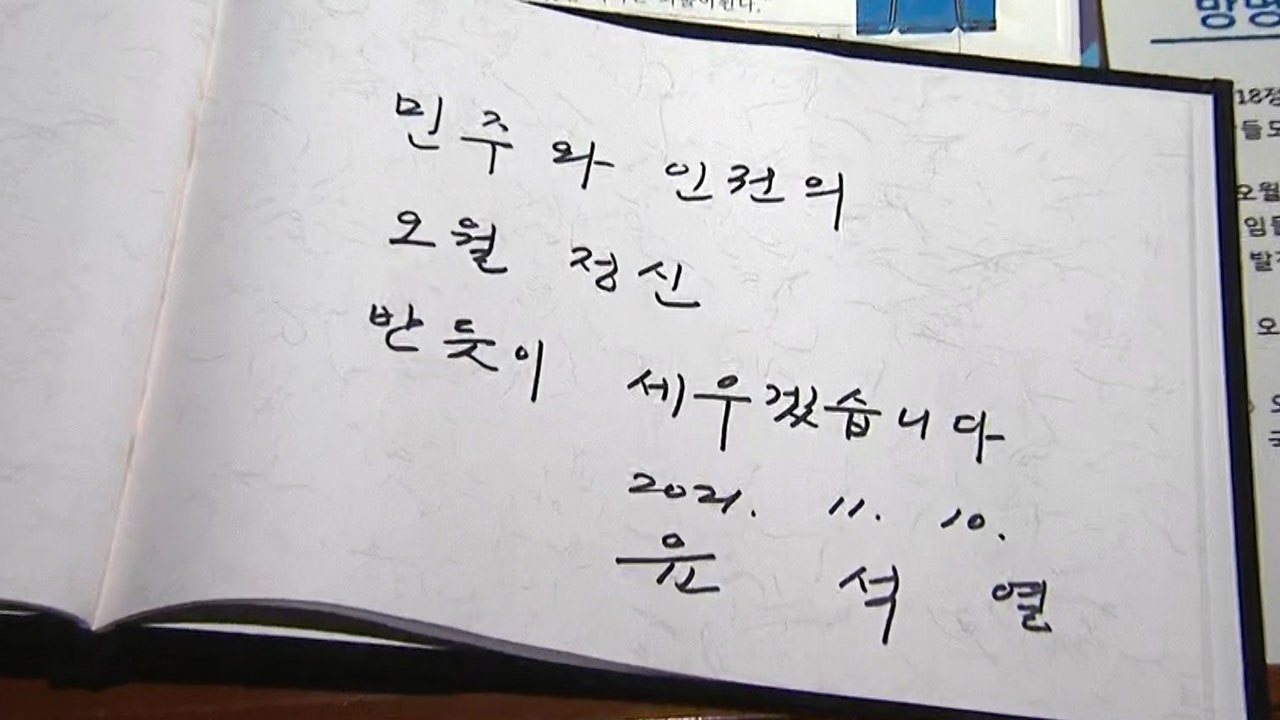 민주와 인권의
오월 정신
반듯이 세우겠습니다
2021. 11. 10.
윤 석 열
망명
18정
들도
오월
오